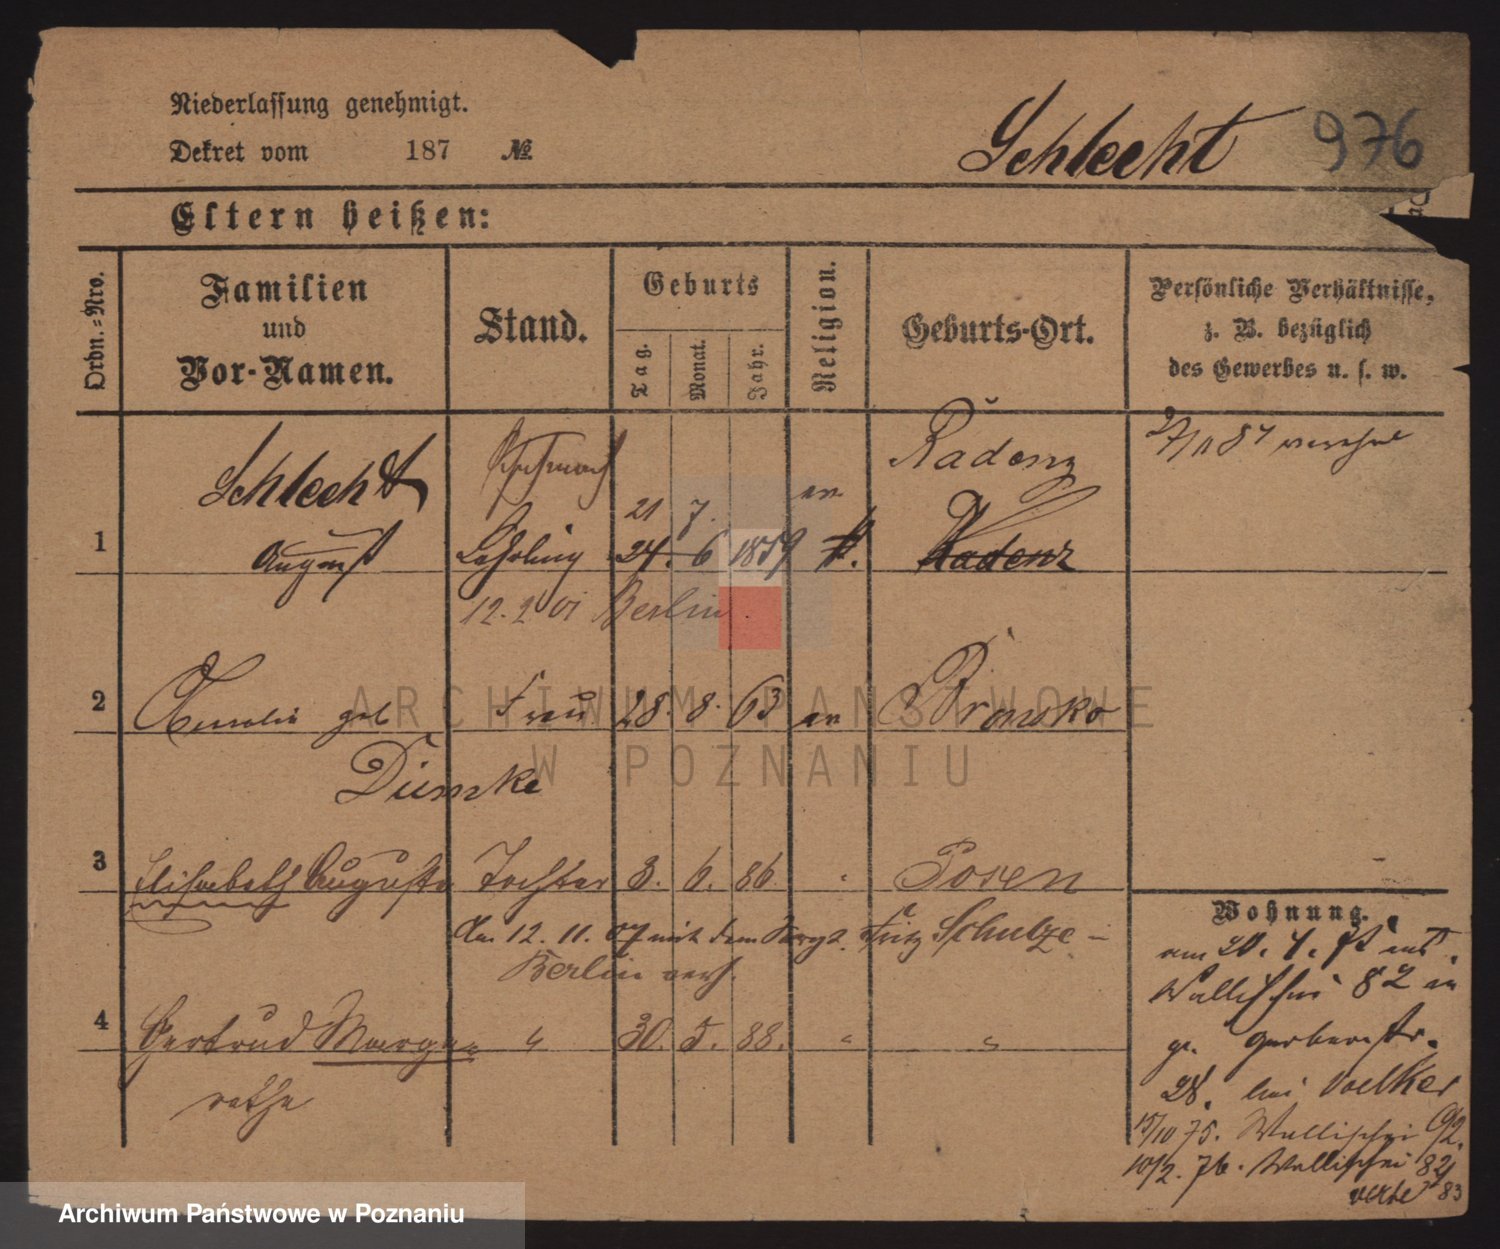 Niederlassung genehmigt.
Dekret vom 187 №
Schlecht 976
Eltern heißen:
Ordn.-Nro.
Familien
und
Vor-Namen.
Stand.
Geburts
Tag.
Monat.
Jahr.
Religion.
Geburts-Ort.
Persönliche Verhältnisse,
z. B. bezüglich
des Gewerbes u. s. w.
Radenz
Schlecht
21 7. ev
1 August Lehrling 24. 6 1859 Radenz
12. 2 01 Berlin
2 geb Frau 28. 8. 63 ev Bronsko
Diemke
3 Elisabeth Auguste Tochter 3. 6. 86 Posen
Am 12. 11. 07 mit dem Fritz Schulze -
Berlin verh.
4 Gertrud Marga- " 30. 5. 88. " "
rethe
Wohnung.
am 20. 4. 75 aus
Wallischei 82 in
gr. Gerberstr.
28. bei Voelker
15/10 75. Wallischei 92.
10/2. 76. Wallischei 82
ARCHIWUM PAŃSTWOWE
W POZNANIU
Archiwum Państwowe w Poznaniu